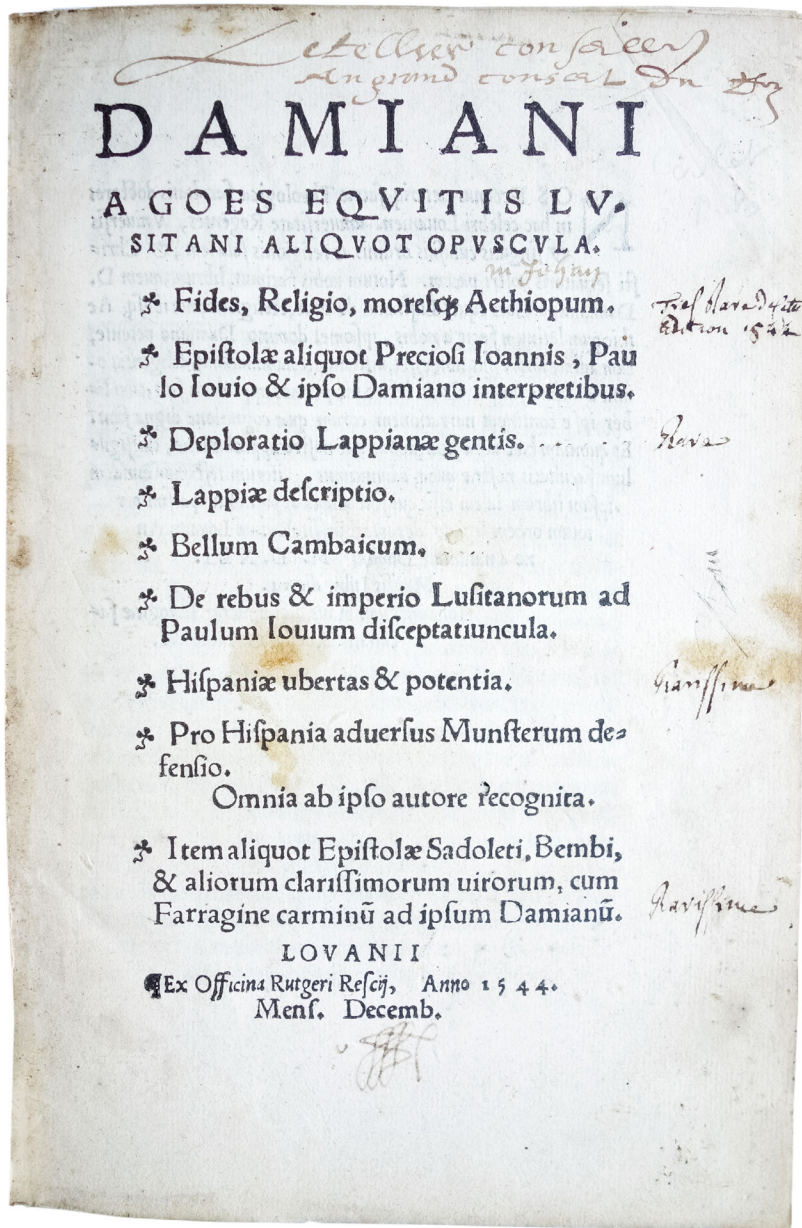 Letellier conseiller
Au grand conseil du Roy
DAMIANI
A GOES EQVITIS LV-
SITANI ALIQVOT OPVSCVLA.
Fides, Religio, moresq́ꝫ Aethiopum.
Tres Rare
edition 1544
Epiſtolæ aliquot Precioſi Ioannis, Pau
lo Iouio & ipſo Damiano interpretibus.
Deploratio Lappianæ gentis.
Rare
Lappiæ deſcriptio.
Bellum Cambaicum.
De rebus & imperio Luſitanorum ad
Paulum Iouium diſceptatiuncula.
Hiſpaniæ ubertas & potentia.
Rarissime
Pro Hiſpania aduerſus Munſterum de-
fenſio.
Omnia ab ipſo autore recognita.
Item aliquot Epiſtolæ Sadoleti, Bembi,
& aliorum clariſſimorum uirorum, cum
Farragine carminū ad ipſum Damianū.
Rarissime
LOVANII
¶Ex Officina Rutgeri Reſcij, Anno 1544.
Menſ. Decemb.